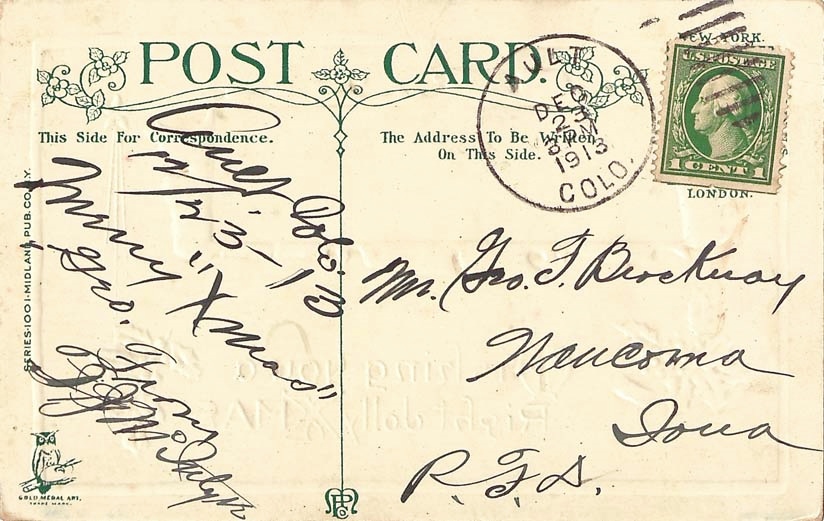 POST CARD.
This Side For Correspondence.
The Address To Be Written
On This Side.
NEW YORK.
U.S. POSTAGE
1 CENT 1
LONDON.
AULT
DEC
23
1913
COLO.
Ault Colo
Merry "Xmas"
Geo.
Mr. Geo. T. Brockway
Waucoma
Iowa
R.F.D.
SERIES-1001-MIDLAND PUB. CO. N.Y.
GOLD MEDAL ART.
TRADE MARK.